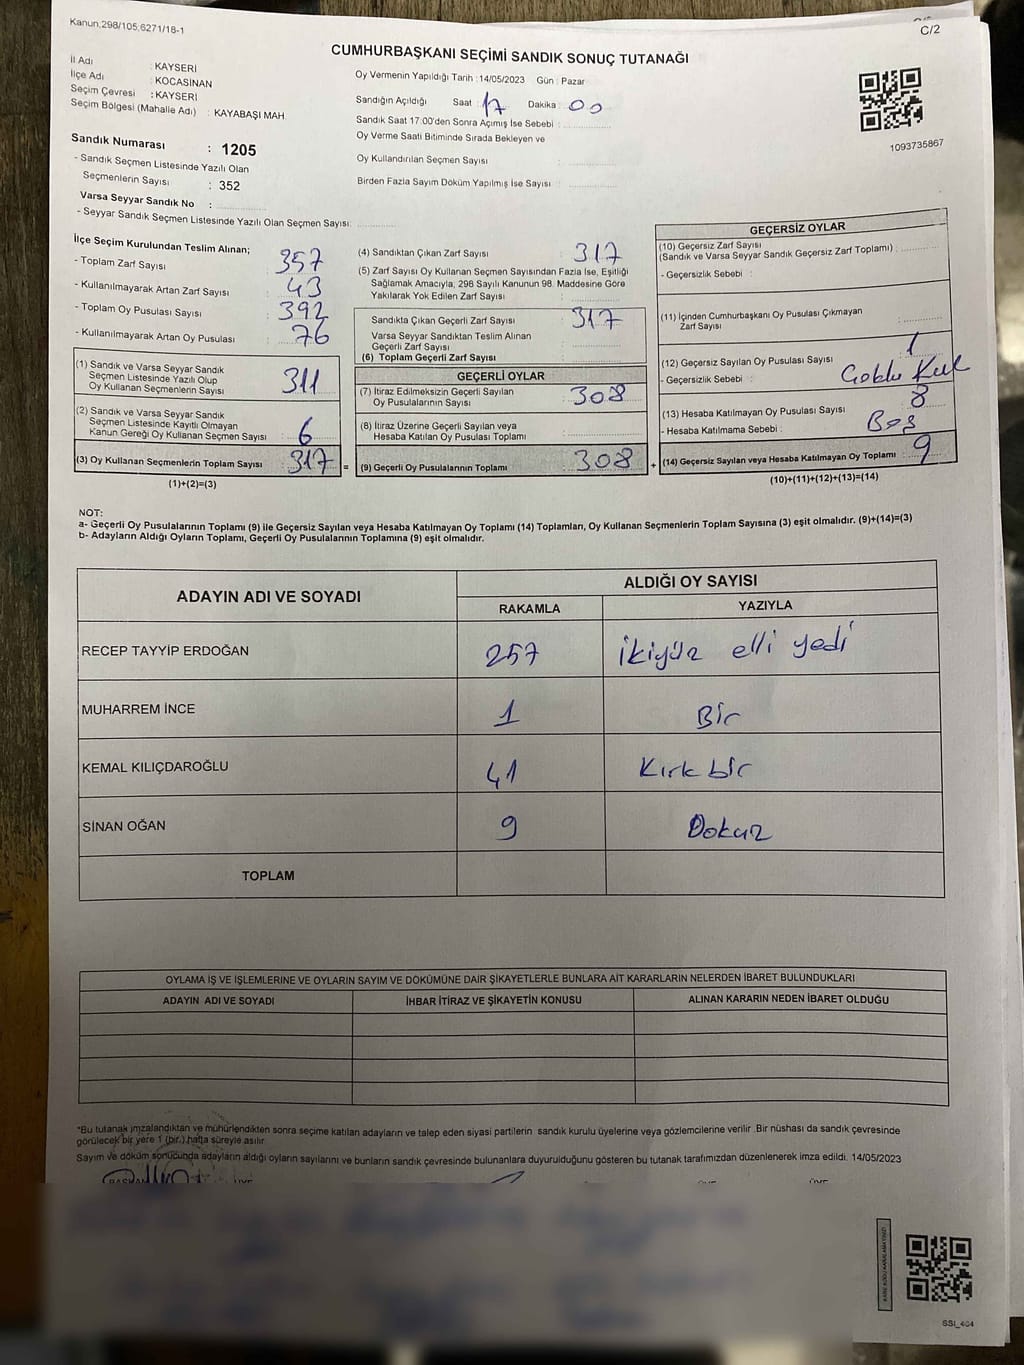 Kanun,298/105,6271/18-1
C/2
CUMHURBAŞKANI SEÇİMİ SANDIK SONUÇ TUTANAĞI
İl Adı : KAYSERİ
İlçe Adı : KOCASİNAN
Seçim Çevresi : KAYSERİ
Seçim Bölgesi (Mahalle Adı) : KAYABAŞI MAH.
Sandık Numarası : 1205
- Sandık Seçmen Listesinde Yazılı Olan
Seçmenlerin Sayısı : 352
Varsa Seyyar Sandık No :
- Seyyar Sandık Seçmen Listesinde Yazılı Olan Seçmen Sayısı:
Oy Vermenin Yapıldığı Tarih : 14/05/2023 Gün : Pazar
Sandığın Açıldığı Saat : 17 Dakika : 00
Sandık Saat 17:00'den Sonra Açımış İse Sebebi :
Oy Verme Saati Bitiminde Sırada Bekleyen ve
Oy Kullandırılan Seçmen Sayısı :
Birden Fazla Sayım Döküm Yapılmış İse Sayısı :
1093735867
İlçe Seçim Kurulundan Teslim Alınan;
- Toplam Zarf Sayısı : 357
- Kullanılmayarak Artan Zarf Sayısı : 43
- Toplam Oy Pusulası Sayısı : 392
- Kullanılmayarak Artan Oy Pusulası : 76
(1) Sandık ve Varsa Seyyar Sandık
Seçmen Listesinde Yazılı Olup
Oy Kullanan Seçmenlerin Sayısı : 311
(2) Sandık ve Varsa Seyyar Sandık
Seçmen Listesinde Kayıtlı Olmayan
Kanun Gereği Oy Kullanan Seçmen Sayısı : 6
(3) Oy Kullanan Seçmenlerin Toplam Sayısı : 317 =
(1)+(2)=(3)
(4) Sandıktan Çıkan Zarf Sayısı : 317
(5) Zarf Sayısı Oy Kullanan Seçmen Sayısından Fazla İse, Eşitliği
Sağlamak Amacıyla, 298 Sayılı Kanunun 98. Maddesine Göre
Yakılarak Yok Edilen Zarf Sayısı :
Sandıkta Çıkan Geçerli Zarf Sayısı : 317
Varsa Seyyar Sandıktan Teslim Alınan
Geçerli Zarf Sayısı :
(6) Toplam Geçerli Zarf Sayısı :
GEÇERLİ OYLAR
(7) İtiraz Edilmeksizin Geçerli Sayılan
Oy Pusulalarının Sayısı : 308
(8) İtiraz Üzerine Geçerli Sayılan veya
Hesaba Katılan Oy Pusulası Toplamı :
(9) Geçerli Oy Pusulalarının Toplamı : 308 +
GEÇERSİZ OYLAR
(10) Geçersiz Zarf Sayısı
(Sandık ve Varsa Seyyar Sandık Geçersiz Zarf Toplamı) :
- Geçersizlik Sebebi :
(11) İçinden Cumhurbaşkanı Oy Pusulası Çıkmayan
Zarf Sayısı :
(12) Geçersiz Sayılan Oy Pusulası Sayısı : 1
- Geçersizlik Sebebi :
(13) Hesaba Katılmayan Oy Pusulası Sayısı : 8
- Hesaba Katılmama Sebebi : Boş
(14) Geçersiz Sayılan veya Hesaba Katılmayan Oy Toplamı : 9
(10)+(11)+(12)+(13)=(14)
NOT:
a- Geçerli Oy Pusulalarının Toplamı (9) ile Geçersiz Sayılan veya Hesaba Katılmayan Oy Toplamı (14) Toplamları, Oy Kullanan Seçmenlerin Toplam Sayısına (3) eşit olmalıdır. (9)+(14)=(3)
b- Adayların Aldığı Oyların Toplamı, Geçerli Oy Pusulalarının Toplamına (9) eşit olmalıdır.
ADAYIN ADI VE SOYADI
ALDIĞI OY SAYISI
RAKAMLA YAZIYLA
RECEP TAYYİP ERDOĞAN 257 ikiyüz elli yedi
MUHARREM İNCE 1 Bir
KEMAL KILIÇDAROĞLU 41 Kırk bir
SİNAN OĞAN 9 Dokuz
TOPLAM
OYLAMA İŞ VE İŞLEMLERİNE VE OYLARIN SAYIM VE DÖKÜMÜNE DAİR ŞİKAYETLERLE BUNLARA AİT KARARLARIN NELERDEN İBARET BULUNDUKLARI
ADAYIN ADI VE SOYADI İHBAR İTİRAZ VE ŞİKAYETİN KONUSU ALINAN KARARIN NEDEN İBARET OLDUĞU
*Bu tutanak imzalandıktan ve mühürlendikten sonra seçime katılan adayların ve talep eden siyasi partilerin sandık kurulu üyelerine veya gözlemcilerine verilir. Bir nüshası da sandık çevresinde
görülecek bir yere 1 (bir) hafta süreyle asılır.
Sayım ve döküm sonucunda adayların aldığı oyların sayılarını ve bunların sandık çevresinde bulunanlara duyurulduğunu gösteren bu tutanak tarafımızdan düzenlenerek imza edildi. 14/05/2023
SSI_404